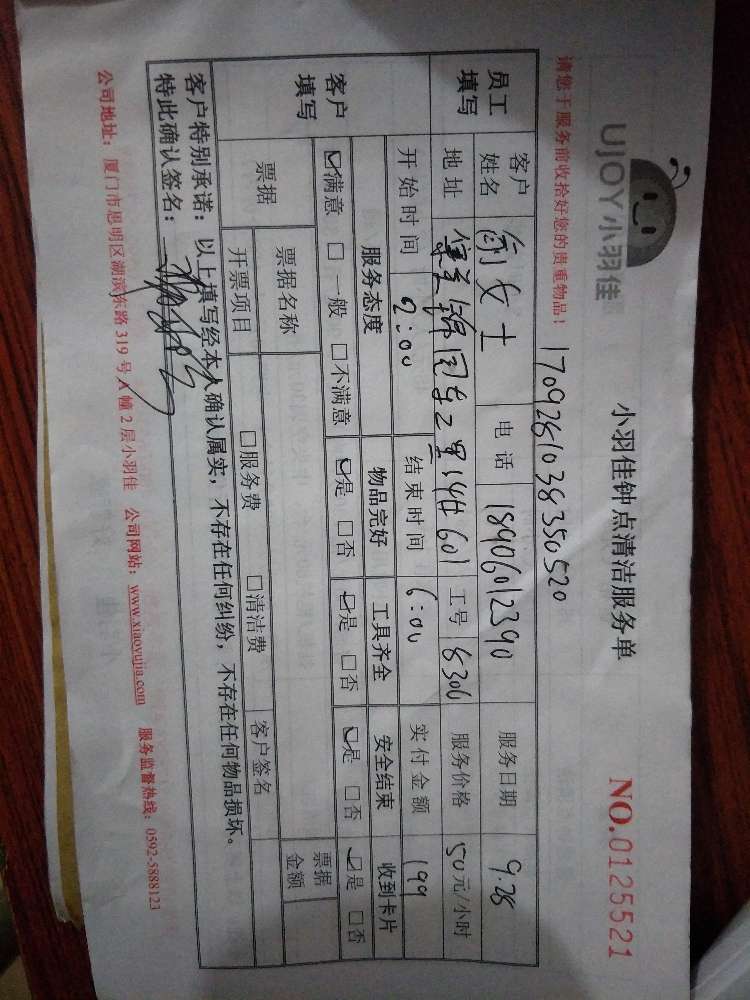 UJOY小羽佳
小羽佳钟点清洁服务单
NO.0125521
请您于服务前收拾好您的贵重物品！
170928103835 0520
员工填写
客户姓名 女士 电话 18906012390 服务日期 9.28
地址 锦园东二里14# 601 工号 服务价格 50元/小时
开始时间 2:00 结束时间 6:00 实付金额 199
客户填写
服务态度 物品完好 工具齐全 安全结束 收到卡片
☑满意 □一般 □不满意 ☑是 □否 ☑是 □否 ☑是 □否 ☑是 □否
票据 票据名称 票据金额
开票项目 □服务费 □清洁费 客户签名
客户特别承诺：以上填写经本人确认属实，不存在任何纠纷，不存在任何物品损坏。
特此确认签名：
公司地址：厦门市思明区湖滨东路319号A幢2层小羽佳 公司网站：www.xiaoyujia.com 服务监督热线：0592-5888123